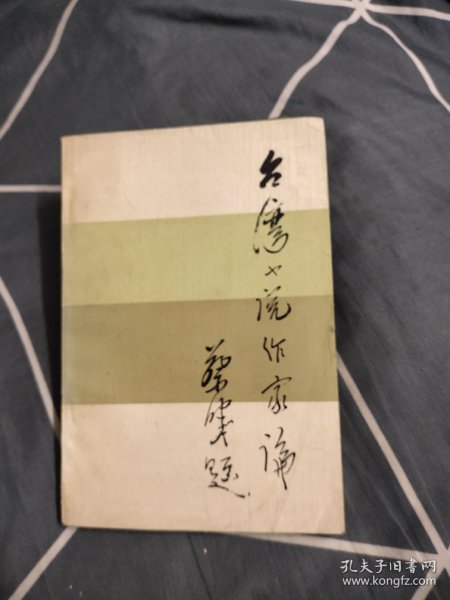 台湾小说作家论
蔡其矫题
孔夫子旧书网
www.kongfz.com